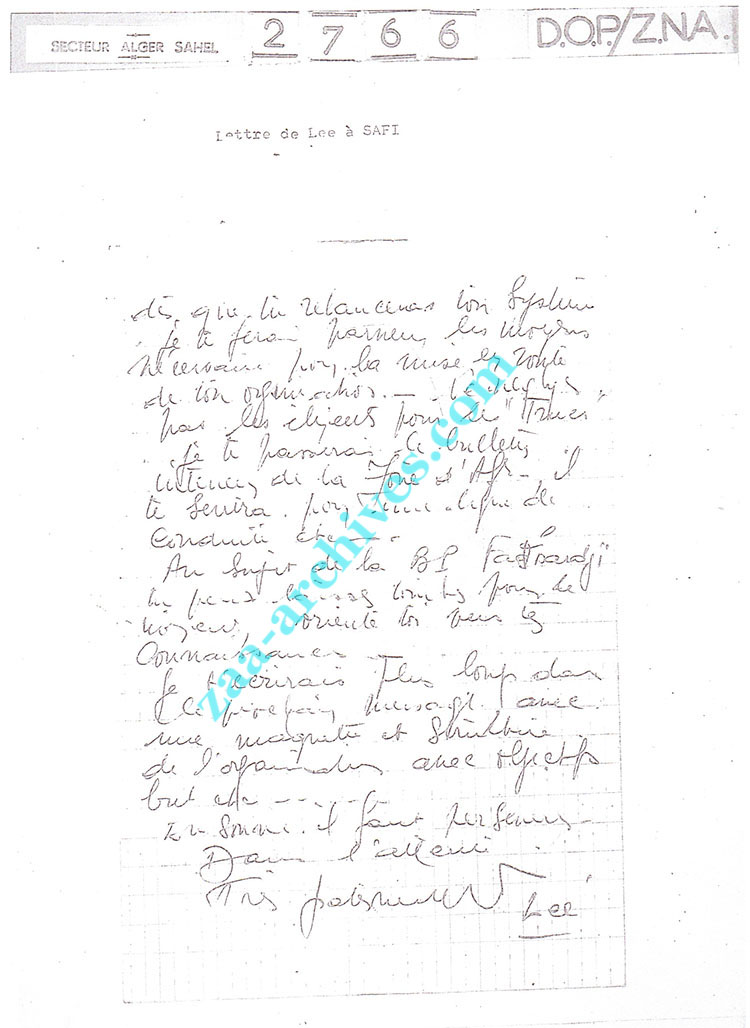 SECTEUR ALGER SAHEL
2 7 6 6
D.O.P./Z.N.A.
Lettre de Lee à SAFI
dès que tu relanceras ton Système
je te ferai parvenir les moyens
nécessaire pour la mise en route
de ton organisation. —
pas les clients pour le "
je te passerais le bulletin
intérieur de la Zone d'Afr— il
te servira pour une ligne de
conduite etc —.
Au sujet de la BP
tu peux pour le
moyens, oriente toi vers tes
Connaissances
Je t'écrirais Plus long dans
le prochain message avec
une maquette et Structure
de l'organisation avec objectifs
but etc ------
En somme il faut
Dans l'attente
Très fraternellement
Lee
zaa-archives.com